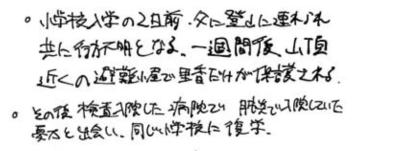 。小学校入学の2日前、父に登山に連れられ
共に行方不明となる。一週間後、山頂
近くの避難小屋で里香だけが保護される。
。その後 検査入院した病院で、肺炎で入院していた
憂太と出会い、同じ小学校に復学。